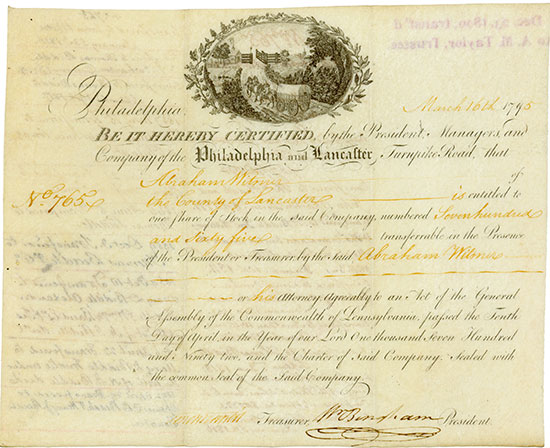 Dec. 23, 1890, transf'd
to A. M. Taylor, Trustee.
Philadelphia, March 16th 1795
BE IT HEREBY CERTIFIED, by the President, Managers, and
Company of the Philadelphia and Lancaster Turnpike Road, that
Abraham Witmer of
No 765 the County of Lancaster is entitled to
one share of Stock in the said Company, numbered Seven hundred
and Sixty five transferrable in the Presence
of the President or Treasurer by the said Abraham Witmer
or his Attorney Agreeably to an Act of the General
Assembly of the Commonwealth of Pennsylvania, passed the Ninth
Day of April, in the Year of our Lord One thousand Seven Hundred
and Ninety two, and the Charter of Said Company. Sealed with
the common Seal of the Said Company.
Treasurer. Wm Bingham President.